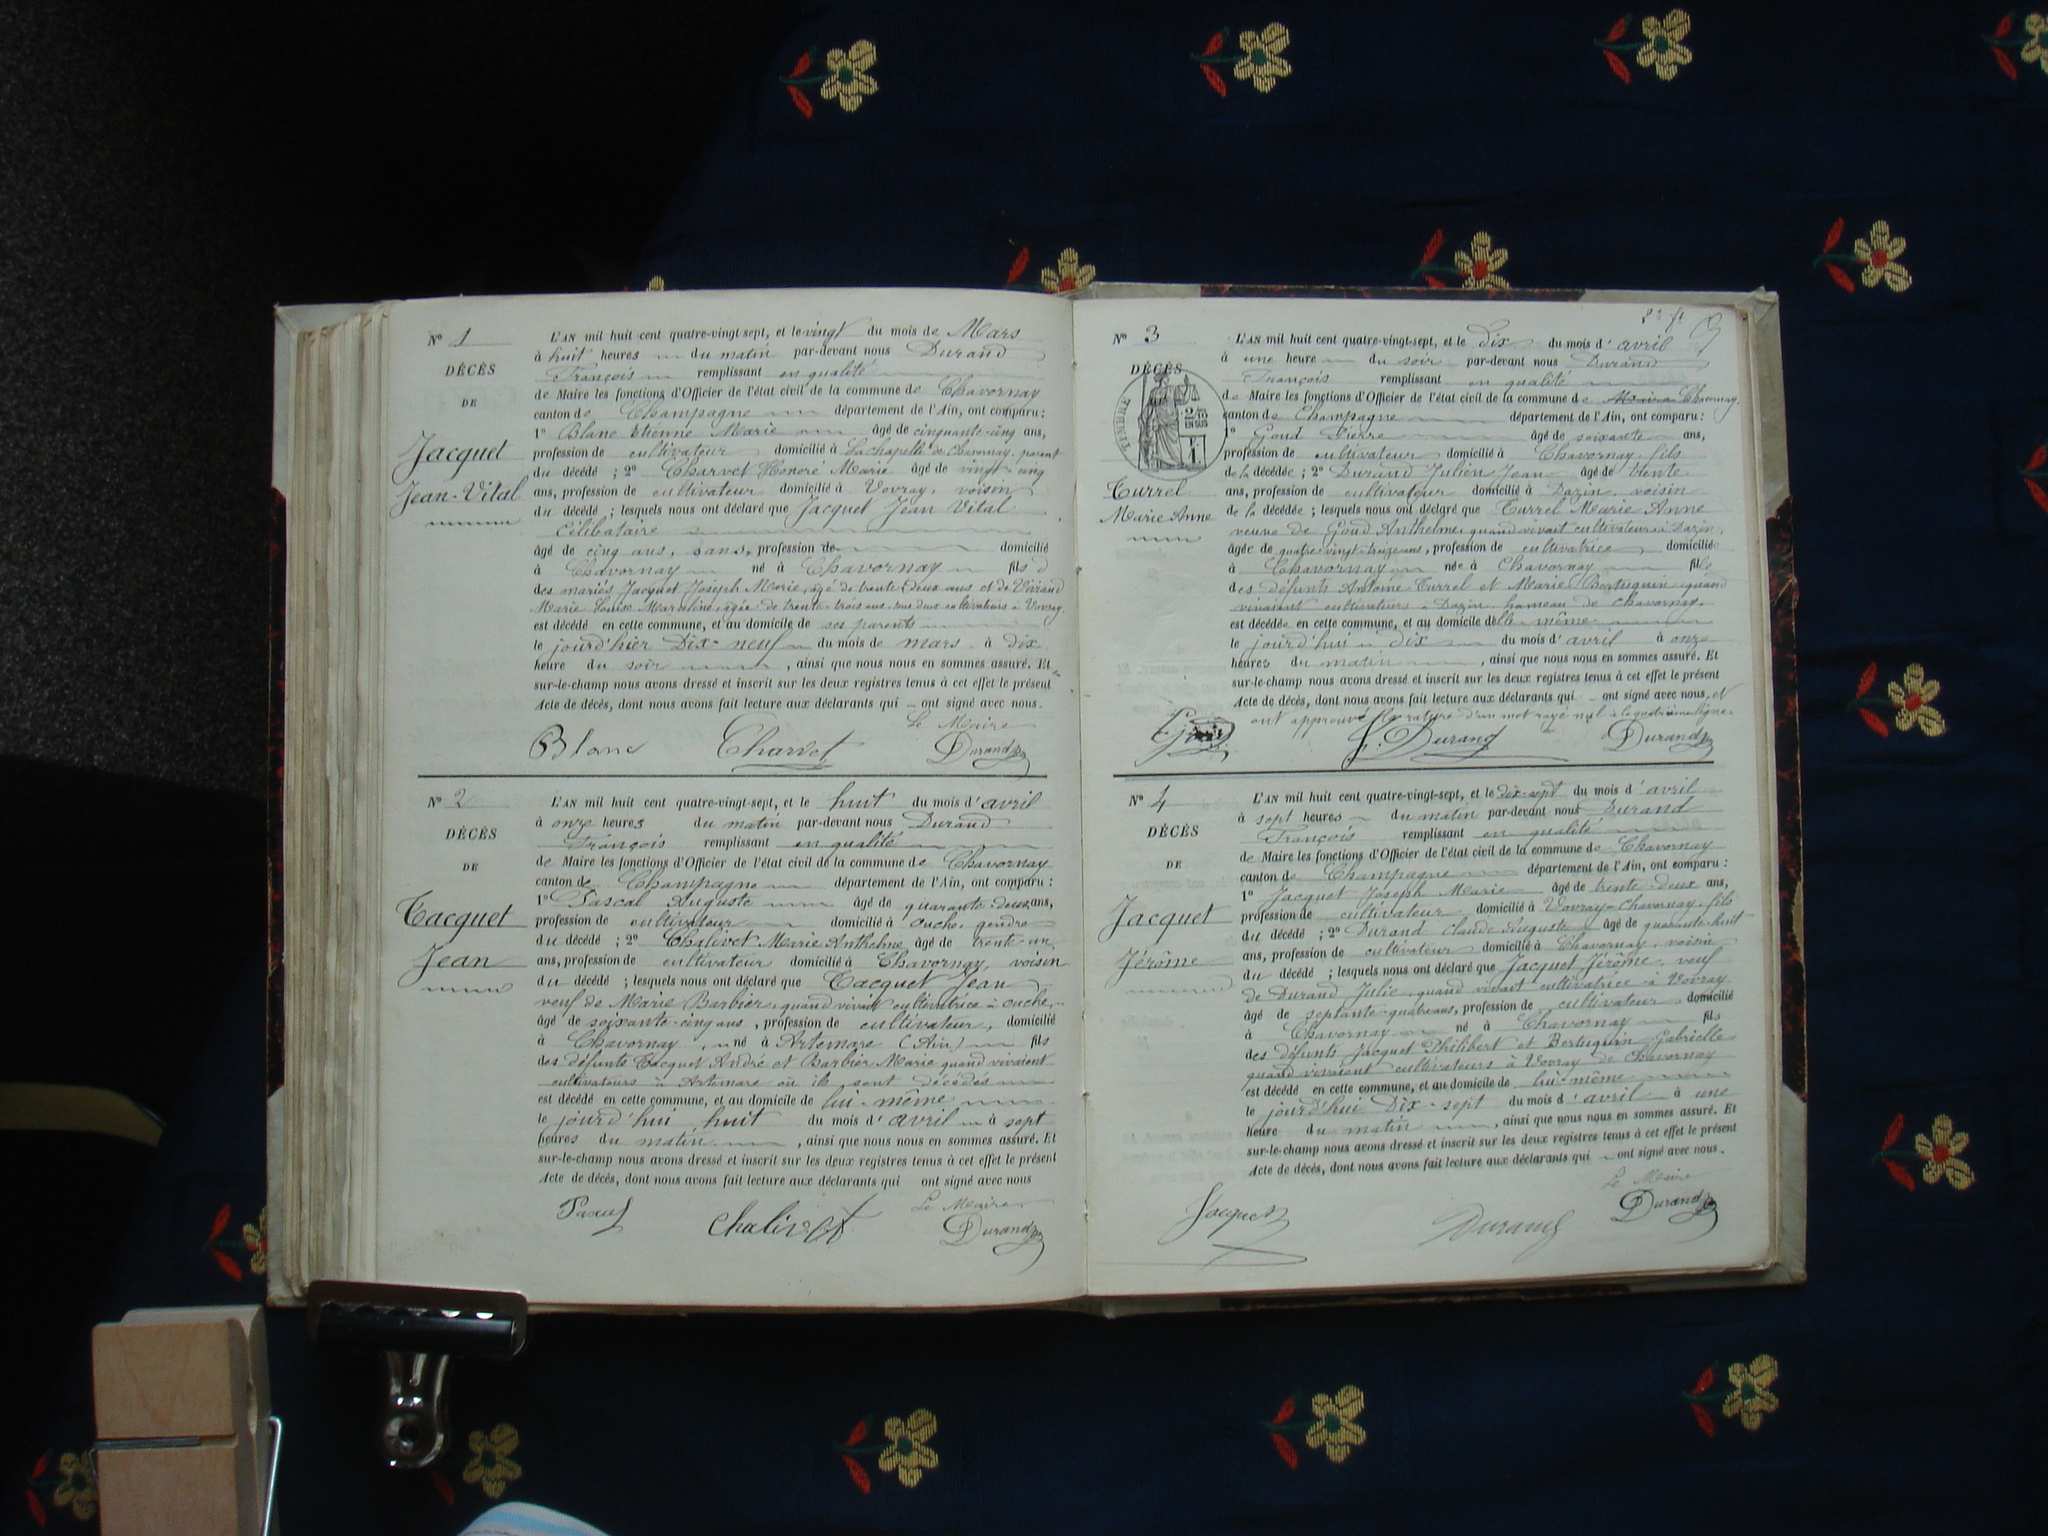 N° 1
DÉCÈS
DE
Jacquet
Jean-Vital
L'AN mil huit cent quatre-vingt-sept, et le vingt du mois de Mars
à huit heures du matin par-devant nous Durand
François remplissant en qualité
de Maire les fonctions d'Officier de l'état civil de la commune de Chavornay
canton de Champagne département de l'Ain, ont comparu :
1° Blanc Etienne Marie âgé de cinquante-cinq ans,
profession de cultivateur domicilié à Lachapelle de Chavornay, parent
du décédé ; 2° Charvet Honoré Marie âgé de vingt-cinq
ans, profession de cultivateur domicilié à Vovray, voisin
du décédé ; lesquels nous ont déclaré que Jacquet Jean Vital
Célibataire
âgé de cinq ans, sans, profession de domicilié
à Chavornay né à Chavornay fils d
des mariés Jacquet Joseph Marie, âgé de trente-deux ans et de
Marie Louise âgée de trente-trois ans, tous deux cultivateurs à Vovray
est décédé en cette commune, et au domicile de ses parents
le jourd'hier Dix-neuf du mois de mars à dix
heure du soir , ainsi que nous nous en sommes assuré. Et
sur-le-champ nous avons dressé et inscrit sur les deux registres tenus à cet effet le présent
Acte de décès, dont nous avons fait lecture aux déclarants qui ont signé avec nous.
Le Maire
Blanc Charvet Durand
N° 2
DÉCÈS
DE
Tacquet
Jean
L'AN mil huit cent quatre-vingt-sept, et le huit du mois d'avril
à onze heures du matin par-devant nous Durand
François remplissant en qualité
de Maire les fonctions d'Officier de l'état civil de la commune de Chavornay
canton de Champagne département de l'Ain, ont comparu :
1° Pascal Auguste âgé de quarante-deux ans,
profession de cultivateur domicilié à Ouche, gendre
du décédé ; 2° Chalivet Marie Anthelme âgé de trente-un
ans, profession de cultivateur domicilié à Chavornay, voisin
du décédé ; lesquels nous ont déclaré que Tacquet Jean
veuf de Marie Barbier, quand vivait cultivatrice à Ouche,
âgé de soixante-cinq ans, profession de cultivateur, domicilié
à Chavornay, né à Artemare (Ain) fils
des défunts Tacquet André et Barbier Marie quand vivaient
cultivateurs à Artemare où ils sont décédés
est décédé en cette commune, et au domicile de lui-même
le jourd'hui huit du mois d'avril à sept
heures du matin , ainsi que nous nous en sommes assuré. Et
sur-le-champ nous avons dressé et inscrit sur les deux registres tenus à cet effet le présent
Acte de décès, dont nous avons fait lecture aux déclarants qui ont signé avec nous
Le Maire
Pascal Chalivet Durand
N° 3
DÉCÈS
TIMBRE
2 EN SUS
Turrel
Marie Anne
L'AN mil huit cent quatre-vingt-sept, et le Dix du mois d'avril
à une heure du soir par-devant nous Durand
François remplissant en qualité
de Maire les fonctions d'Officier de l'état civil de la commune de Chavornay.
canton de Champagne département de l'Ain, ont comparu :
1° Goud Pierre âgé de soixante ans,
profession de cultivateur domicilié à Chavornay, fils
de la décédée ; 2° Durand Julien Jean âgé de trente
ans, profession de cultivateur domicilié à Dazin, voisin
de la décédée ; lesquels nous ont déclaré que Turrel Marie Anne
veuve de Goud Anthelme, quand vivait cultivateur à Dazin,
âgée de quatre-vingt-treize ans, profession de cultivatrice, domiciliée
à Chavornay née à Chavornay fille
des défunts Antoine Turrel et Marie Bertuquin quand
vivaient cultivateurs à Dazin hameau de Chavornay,
est décédée en cette commune, et au domicile d'elle même
le jourd'hui dix du mois d'avril à onze
heures du matin , ainsi que nous nous en sommes assuré. Et
sur-le-champ nous avons dressé et inscrit sur les deux registres tenus à cet effet le présent
Acte de décès, dont nous avons fait lecture aux déclarants qui ont signé avec nous, et
ont approuvé la rature d'un mot rayé nul à la quatrième ligne.
J. Durand Durand
N° 4
DÉCÈS
DE
Jacquet
Jérôme
L'AN mil huit cent quatre-vingt-sept, et le dix-sept du mois d'avril
à sept heures du matin par-devant nous Durand
François remplissant en qualité
de Maire les fonctions d'Officier de l'état civil de la commune de Chavornay
canton de Champagne département de l'Ain, ont comparu :
1° Jacquet Joseph Marie âgé de trente-deux ans,
profession de cultivateur domicilié à Vovray-Chavornay, fils
du décédé ; 2° Durand Claude Auguste âgé de quarante-huit
ans, profession de cultivateur domicilié à Chavornay, voisin
du décédé ; lesquels nous ont déclaré que Jacquet Jérôme, veuf
de Durand Julie, quand vivait cultivatrice à Vovray
âgé de septante-quatre ans, profession de cultivateur domicilié
à Chavornay né à Chavornay fils
des défunts Jacquet Philibert et Bertuquin Gabrielle
quand vivaient cultivateurs à Vovray de Chavornay
est décédé en cette commune, et au domicile de lui-même
le jourd'hui Dix-sept du mois d'avril à une
heure du matin , ainsi que nous nous en sommes assuré. Et
sur-le-champ nous avons dressé et inscrit sur les deux registres tenus à cet effet le présent
Acte de décès, dont nous avons fait lecture aux déclarants qui ont signé avec nous.
Le Maire
Jacquet Durand Durand